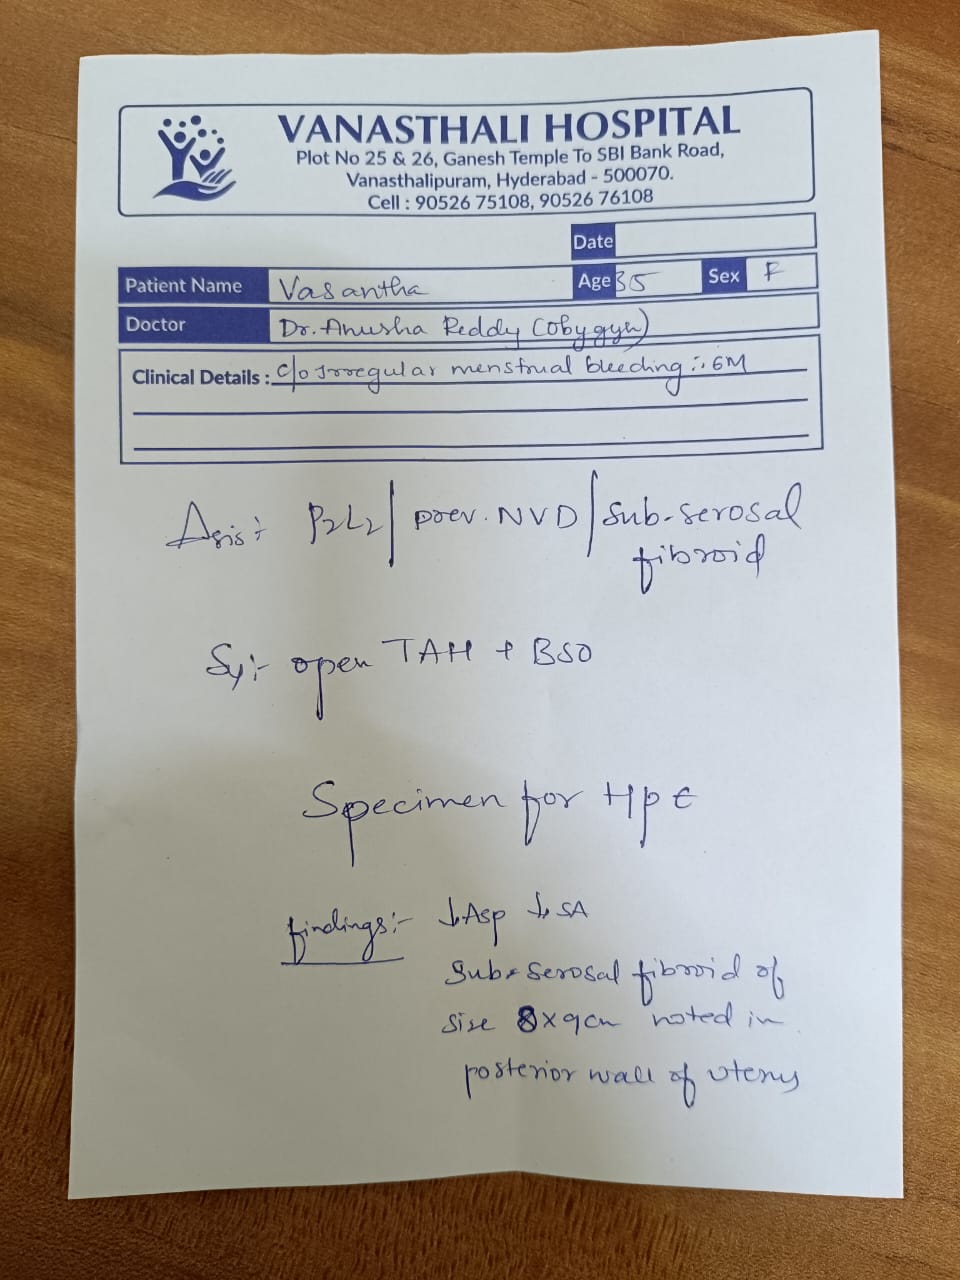 VANASTHALI HOSPITAL
Plot No 25 & 26, Ganesh Temple To SBI Bank Road,
Vanasthalipuram, Hyderabad - 500070.
Cell : 90526 75108, 90526 76108
Date
Patient Name Vasantha Age 35 Sex F
Doctor Dr. Anusha Reddy (Obygyn)
Clinical Details : c/o Irregular menstrual bleeding :: 6M
P2L2 | prev. NVD | Sub-serosal
fibroid
Sy:- open TAH + BSO
Specimen for HPE
findings:- ↓Asp ↓SA
Sub-serosal fibroid of
size 8x9cm noted in
posterior wall of uterus